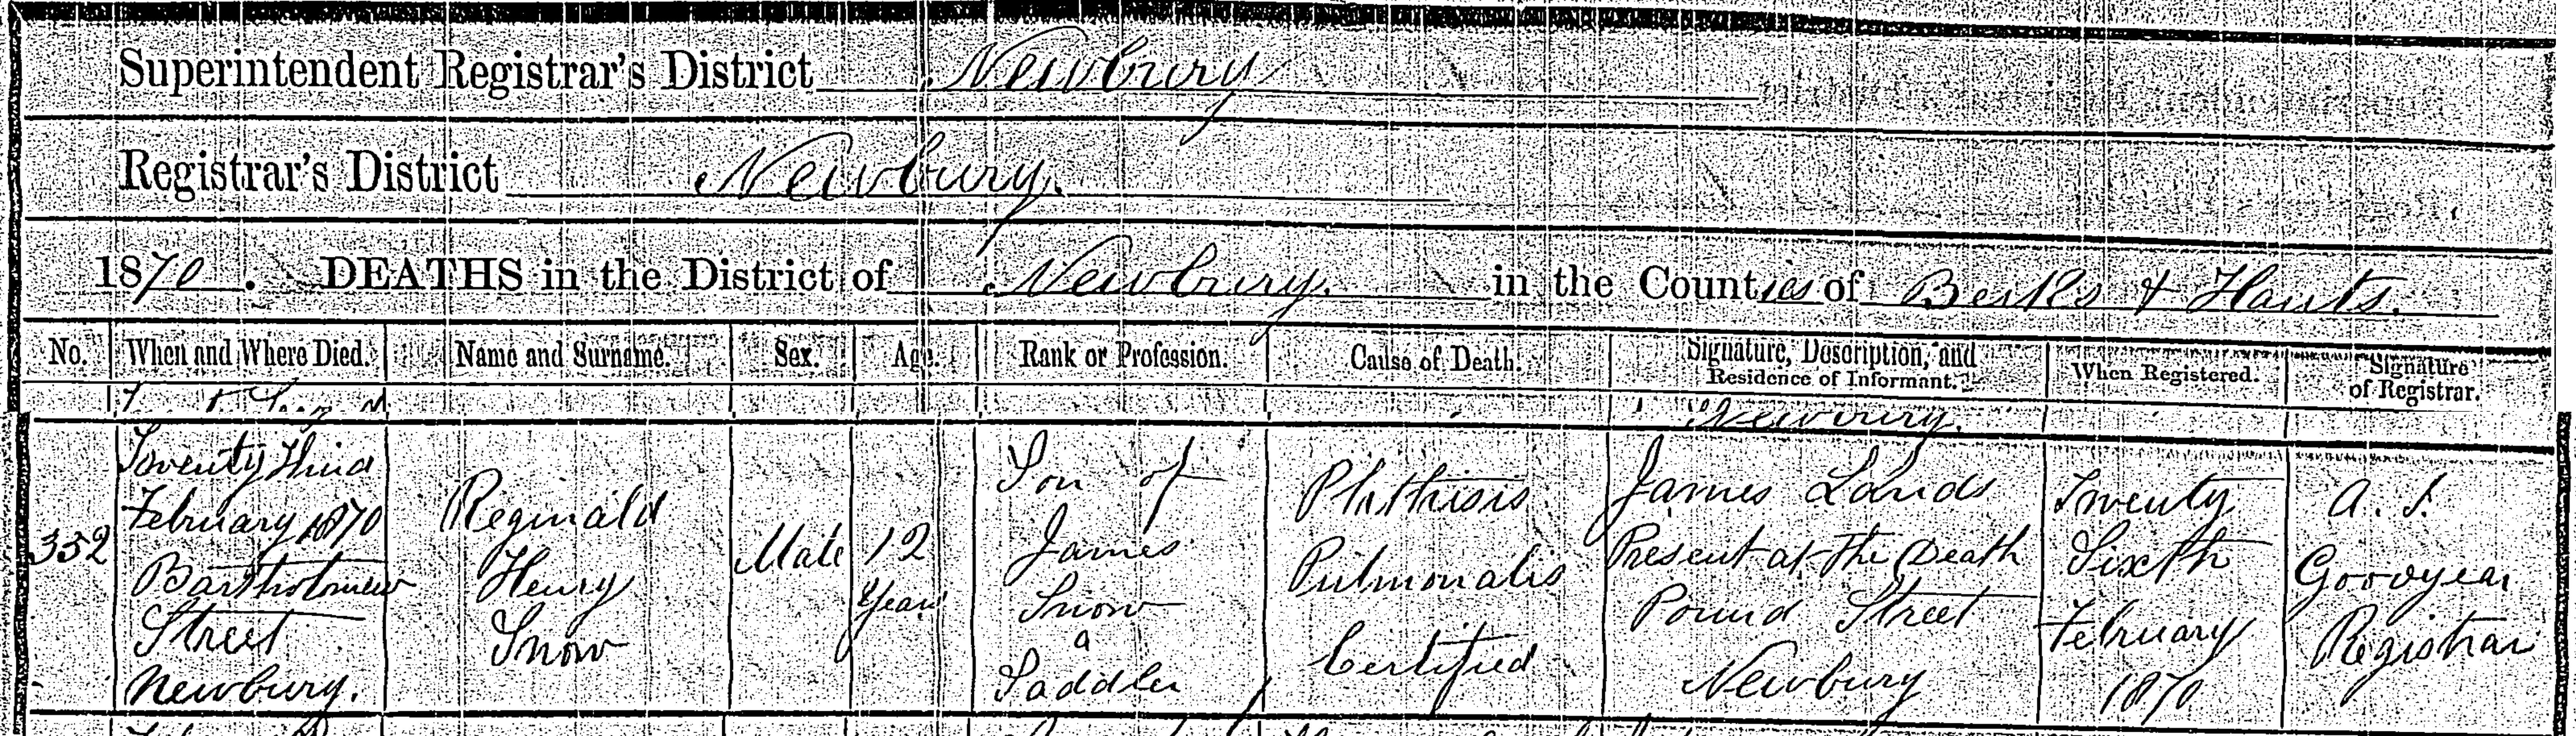 Superintendent Registrar's District Newbury
Registrar's District Newbury.
1870. DEATHS in the District of Newbury. in the Counties of Berks & Hants.
No. When and Where Died. Name and Surname. Sex. Age. Rank or Profession. Cause of Death. Signature, Description, and Residence of Informant. When Registered. Signature of Registrar.
Newbury.
352
Twenty Third
February 1870
Bartholomew
Street
Newbury.
Reginald
Henry
Snow
Male
12
Years
Son of
James
Snow
a
Saddler
Phthisis
Pulmonalis
Certified
James Lands
Present at the Death
Pound Street
Newbury
Twenty
Sixth
February
1870
A. S.
Goodyear
Registrar